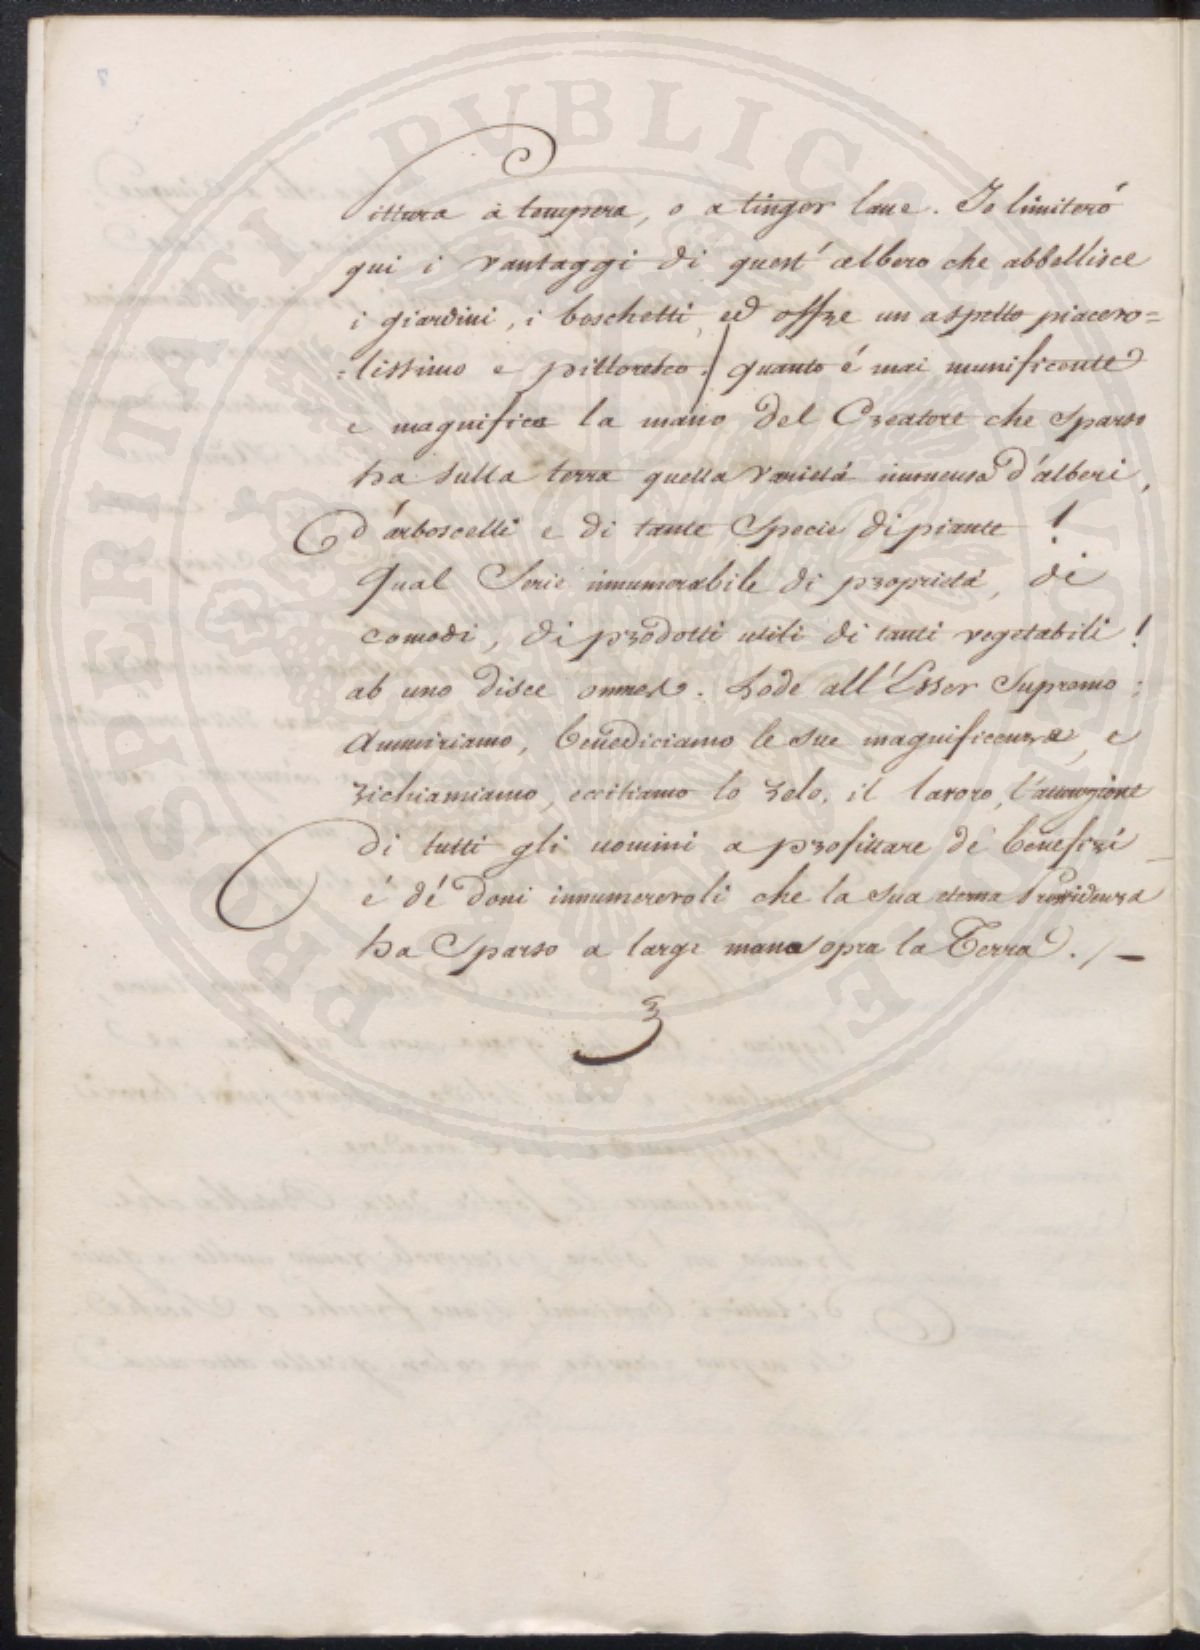 PROSPERITATI PUBLICAE AUGENDAE
pittura à tempera, o a tinger lane. Io limiteró
qui i vantaggi di quest' albero che abbellisce
i giardini, i boschetti, ed offre un aspetto piacevo=
=lissimo e pittoresco. quanto é mai munificente
e magnifica la mano del Creatore che sparso
ha sulla terra quella varietá immensa d'alberi,
d'arboscelli e di tante Specie di piante !
Qual Serie innumerabile di proprietá, di
comodi, di prodotti utili di tanti vegetabili !
ab uno disce omnes. Lode all'Esser Supremo :
Ammiriamo, benediciamo le sue magnificenze, e
richiamiamo, eccitiamo lo zelo, il lavoro, l'attenzione
di tutti gli uomini a profittare de' benefizi
é dé doni innumerevoli che la sua eterna Providenza
ha Sparso a large mano sopra la Terra. / —